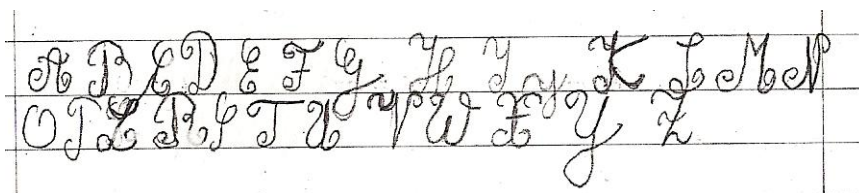 A B C D E F G H I J K L M N
O P Q R S T U V W X Y Z